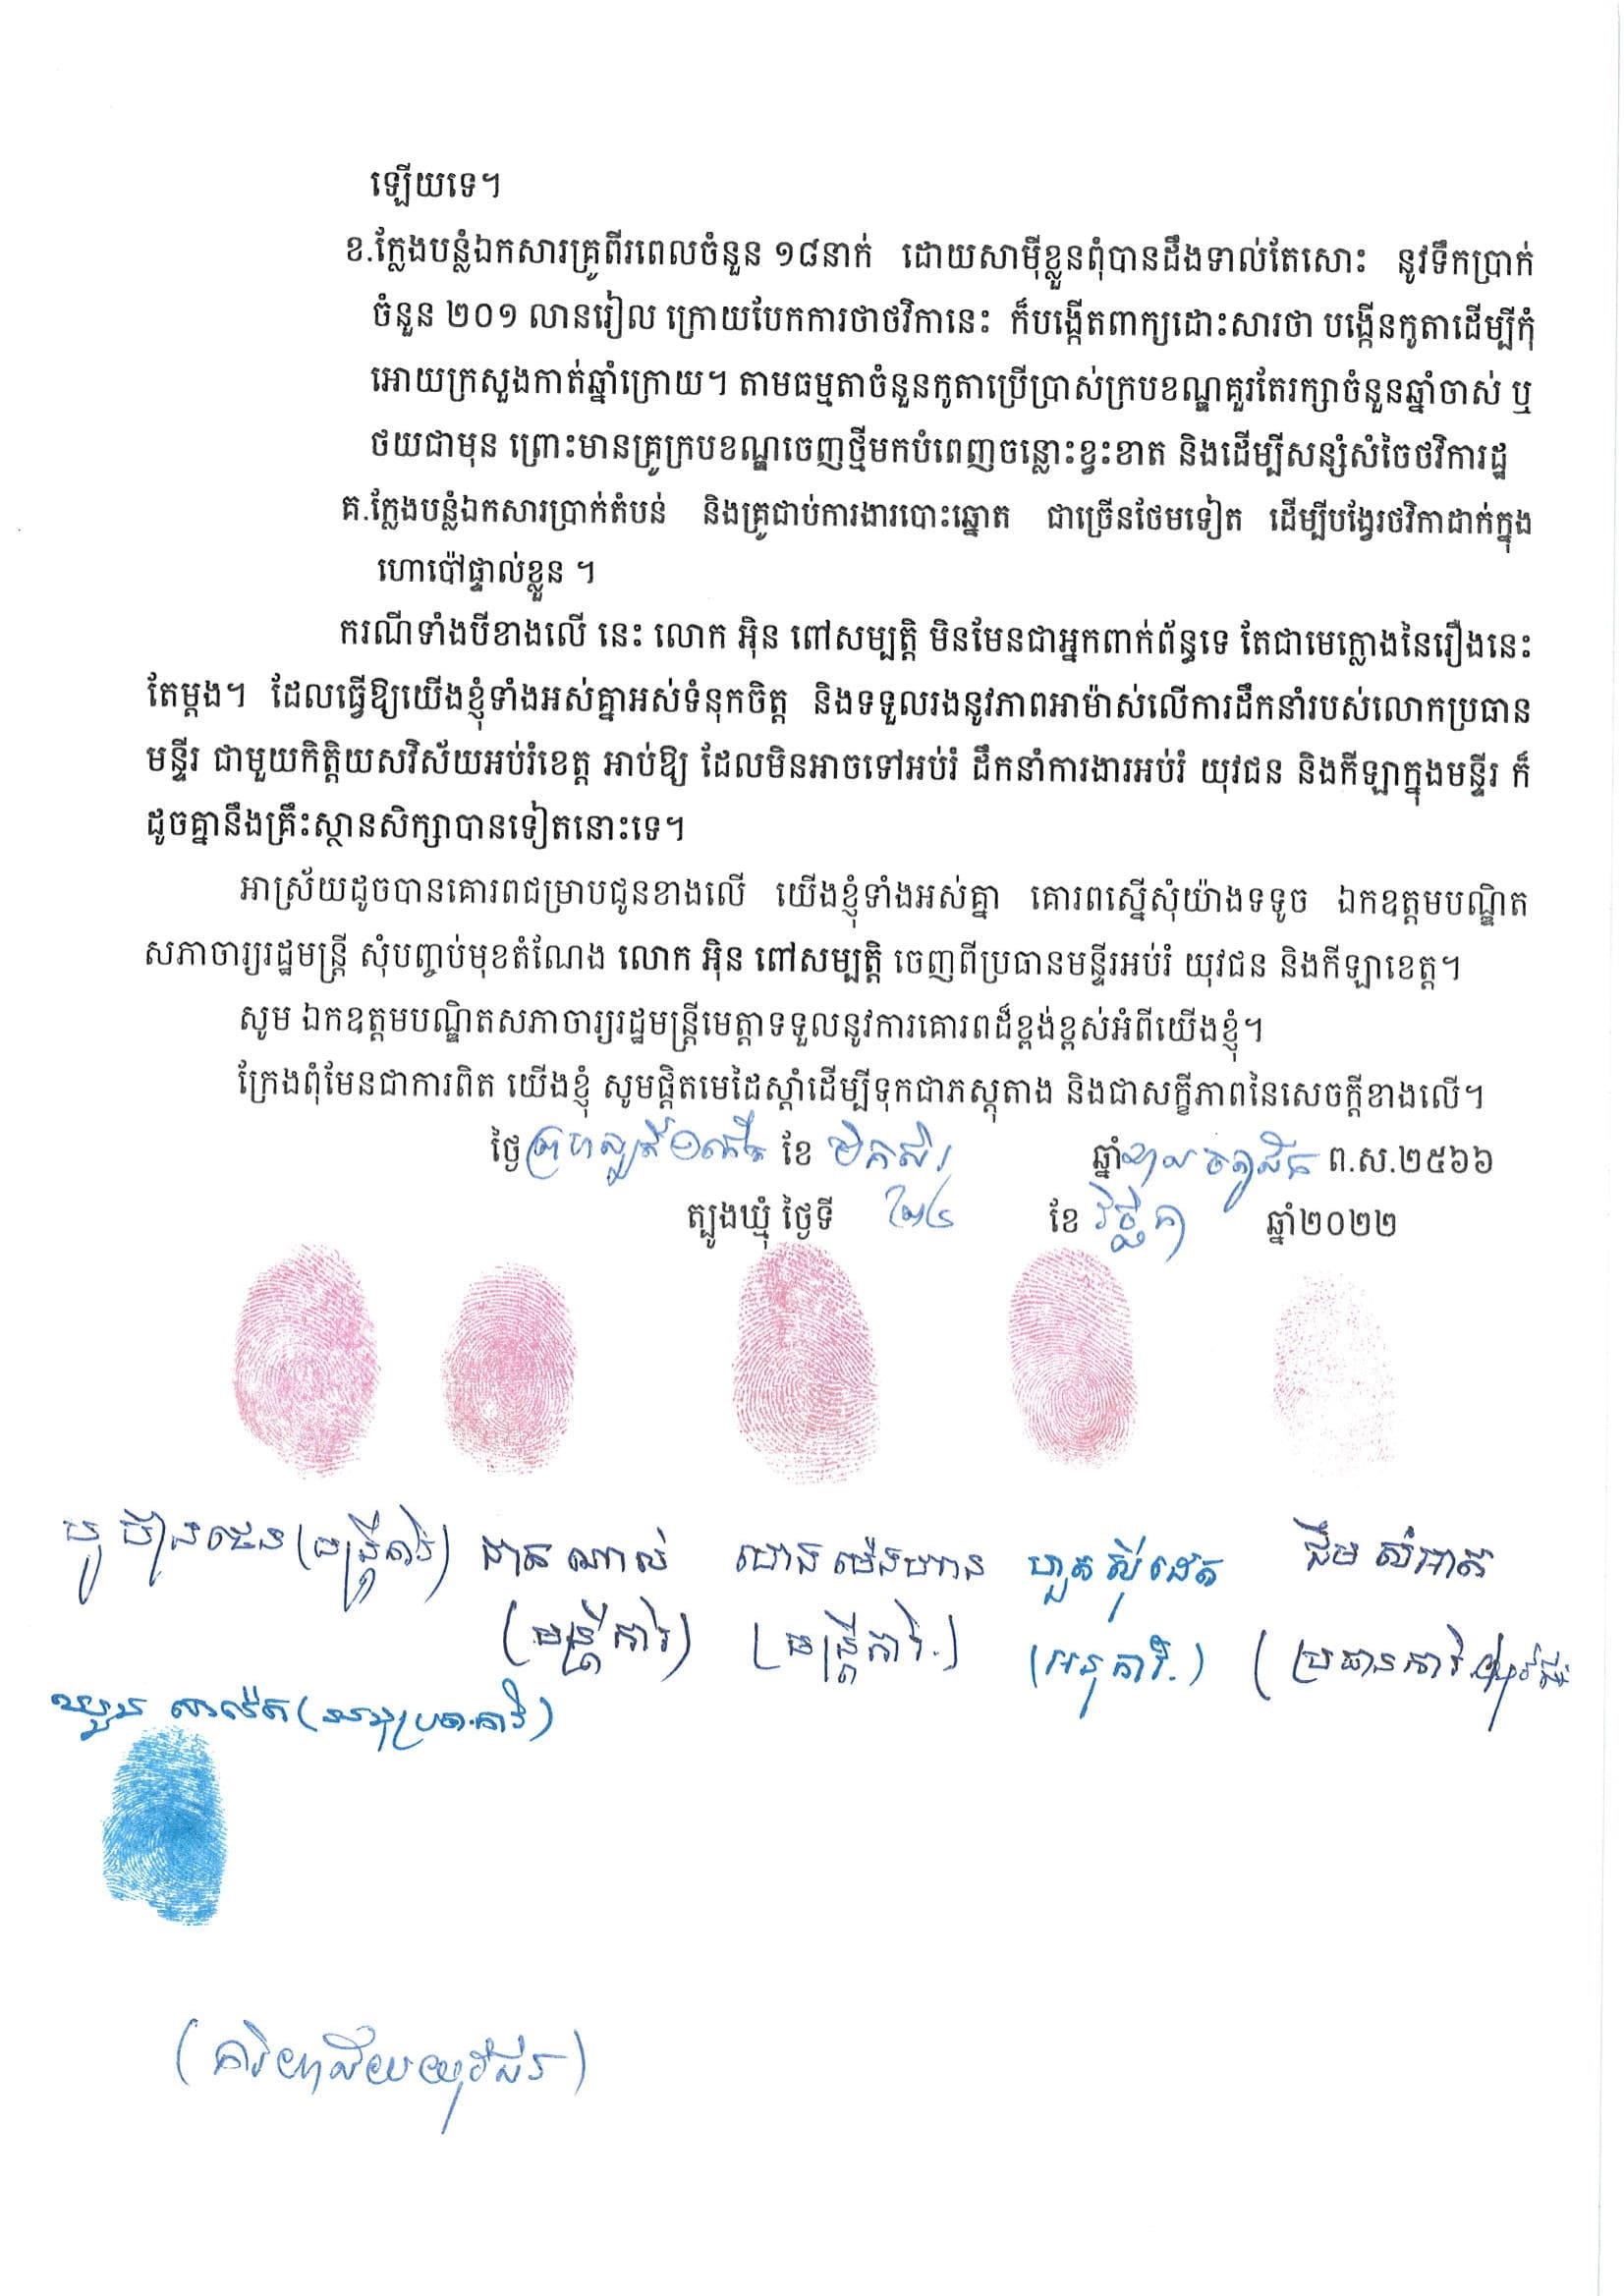 ឡើយទេ។
ខ.ក្លែងបន្លំឯកសារគ្រូពីរពេលចំនួន ១៨នាក់ ដោយសាម៉ីខ្លួនពុំបានដឹងទាល់តែសោះ នូវទឹកប្រាក់
ចំនួន ២០១ លានរៀល ក្រោយបែកការថាថវិកានេះ ក៏បង្កើតពាក្យដោះសារថា បង្កើនកូតាដើម្បីកុំ
អោយក្រសួងកាត់ឆ្នាំក្រោយ។ តាមធម្មតាចំនួនកូតាប្រើប្រាស់ក្របខណ្ឌគួរតែរក្សាចំនួនឆ្នាំចាស់ ឬ
ថយជាមុន ព្រោះមានគ្រូក្របខណ្ឌចេញថ្មីមកបំពេញចន្លោះខ្វះខាត និងដើម្បីសន្សំសំចៃថវិការដ្ឋ
គ.ក្លែងបន្លំឯកសារប្រាក់តំបន់ និងគ្រូជាប់ការងារបោះឆ្នោត ជាច្រើនថែមទៀត ដើម្បីបង្វែរថវិកាដាក់ក្នុង
ហោប៉ៅផ្ទាល់ខ្លួន ។
ករណីទាំងបីខាងលើ នេះ លោក អ៊ិន ពៅសម្បត្តិ មិនមែនជាអ្នកពាក់ព័ន្ធទេ តែជាមេក្លោងនៃរឿងនេះ
តែម្តង។ ដែលធ្វើឱ្យយើងខ្ញុំទាំងអស់គ្នាអស់ទំនុកចិត្ត និងទទួលរងនូវភាពអាម៉ាស់លើការដឹកនាំរបស់លោកប្រធាន
មន្ទីរ ជាមួយកិត្តិយសវិស័យអប់រំខេត្ត អាប់ឱ្យ ដែលមិនអាចទៅអប់រំ ដឹកនាំការងារអប់រំ យុវជន និងកីឡាក្នុងមន្ទីរ ក៏
ដូចគ្នានឹងគ្រឹះស្ថានសិក្សាបានទៀតនោះទេ។
អាស្រ័យដូចបានគោរពជម្រាបជូនខាងលើ យើងខ្ញុំទាំងអស់គ្នា គោរពស្នើសុំយ៉ាងទទូច ឯកឧត្តមបណ្ឌិត
សភាចារ្យរដ្ឋមន្ត្រី សុំបញ្ចប់មុខតំណែង លោក អ៊ិន ពៅសម្បត្តិ ចេញពីប្រធានមន្ទីរអប់រំ យុវជន និងកីឡាខេត្ត។
សូម ឯកឧត្តមបណ្ឌិតសភាចារ្យរដ្ឋមន្ត្រីមេត្តាទទួលនូវការគោរពដ៏ខ្ពង់ខ្ពស់អំពីយើងខ្ញុំ។
ក្រែងពុំមែនជាការពិត យើងខ្ញុំ សូមផ្តិតមេដៃស្តាំដើម្បីទុកជាភស្តុតាង និងជាសក្ខីភាពនៃសេចក្តីខាងលើ។
ថ្ងៃព្រហស្បតិ៍១កើត ខែ មិគសិរ ឆ្នាំខាល ចត្វាស័ក ព.ស.២៥៦៦
ត្បូងឃ្មុំ ថ្ងៃទី ២៤ ខែ វិច្ឆិកា ឆ្នាំ២០២២
(មន្ត្រីការិ) ណាល់ ម៉េងហាន ហួត ស៊ីដេត ជឹម សំអាត
(មន្ត្រីការិ) (មន្ត្រីការិ.) (អនុការិ.) (ប្រធានការិ.